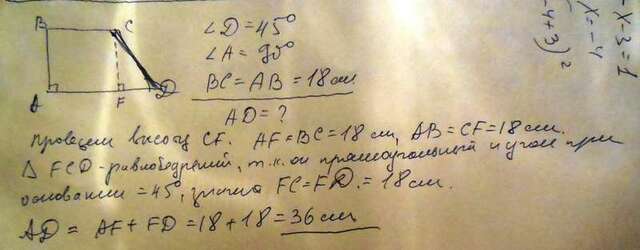 B C
∠D = 45°
∠A = 90°
BC = AB = 18 см
A F D
AD = ?
Проведем высоту CF. AF = BC = 18 см, AB = CF = 18 см.
△ FCD - равнобедренный, т.к. он прямоугольный и угол при
основании = 45°, значит FC = FD = 18 см.
AD = AF + FD = 18 + 18 = 36 см
-x-3=1
x=-4
-4+3)²